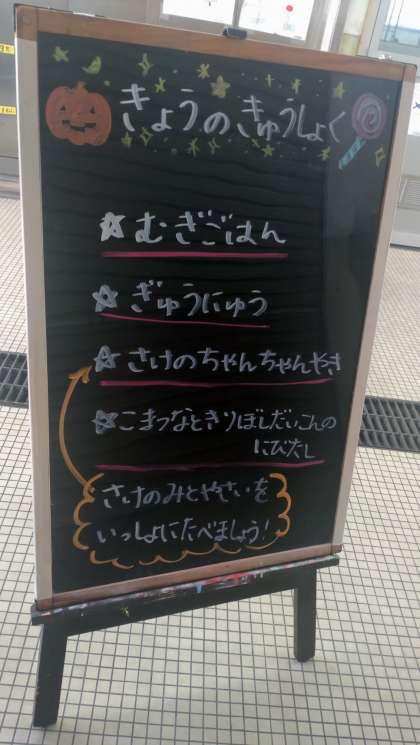 きょうのきゅうしょく
☆むぎごはん
☆ぎゅうにゅう
☆さけのちゃんちゃんやき
☆こまつなときりぼしだいこんの
にびたし
さけのみとやさいを
いっしょにたべましょう!